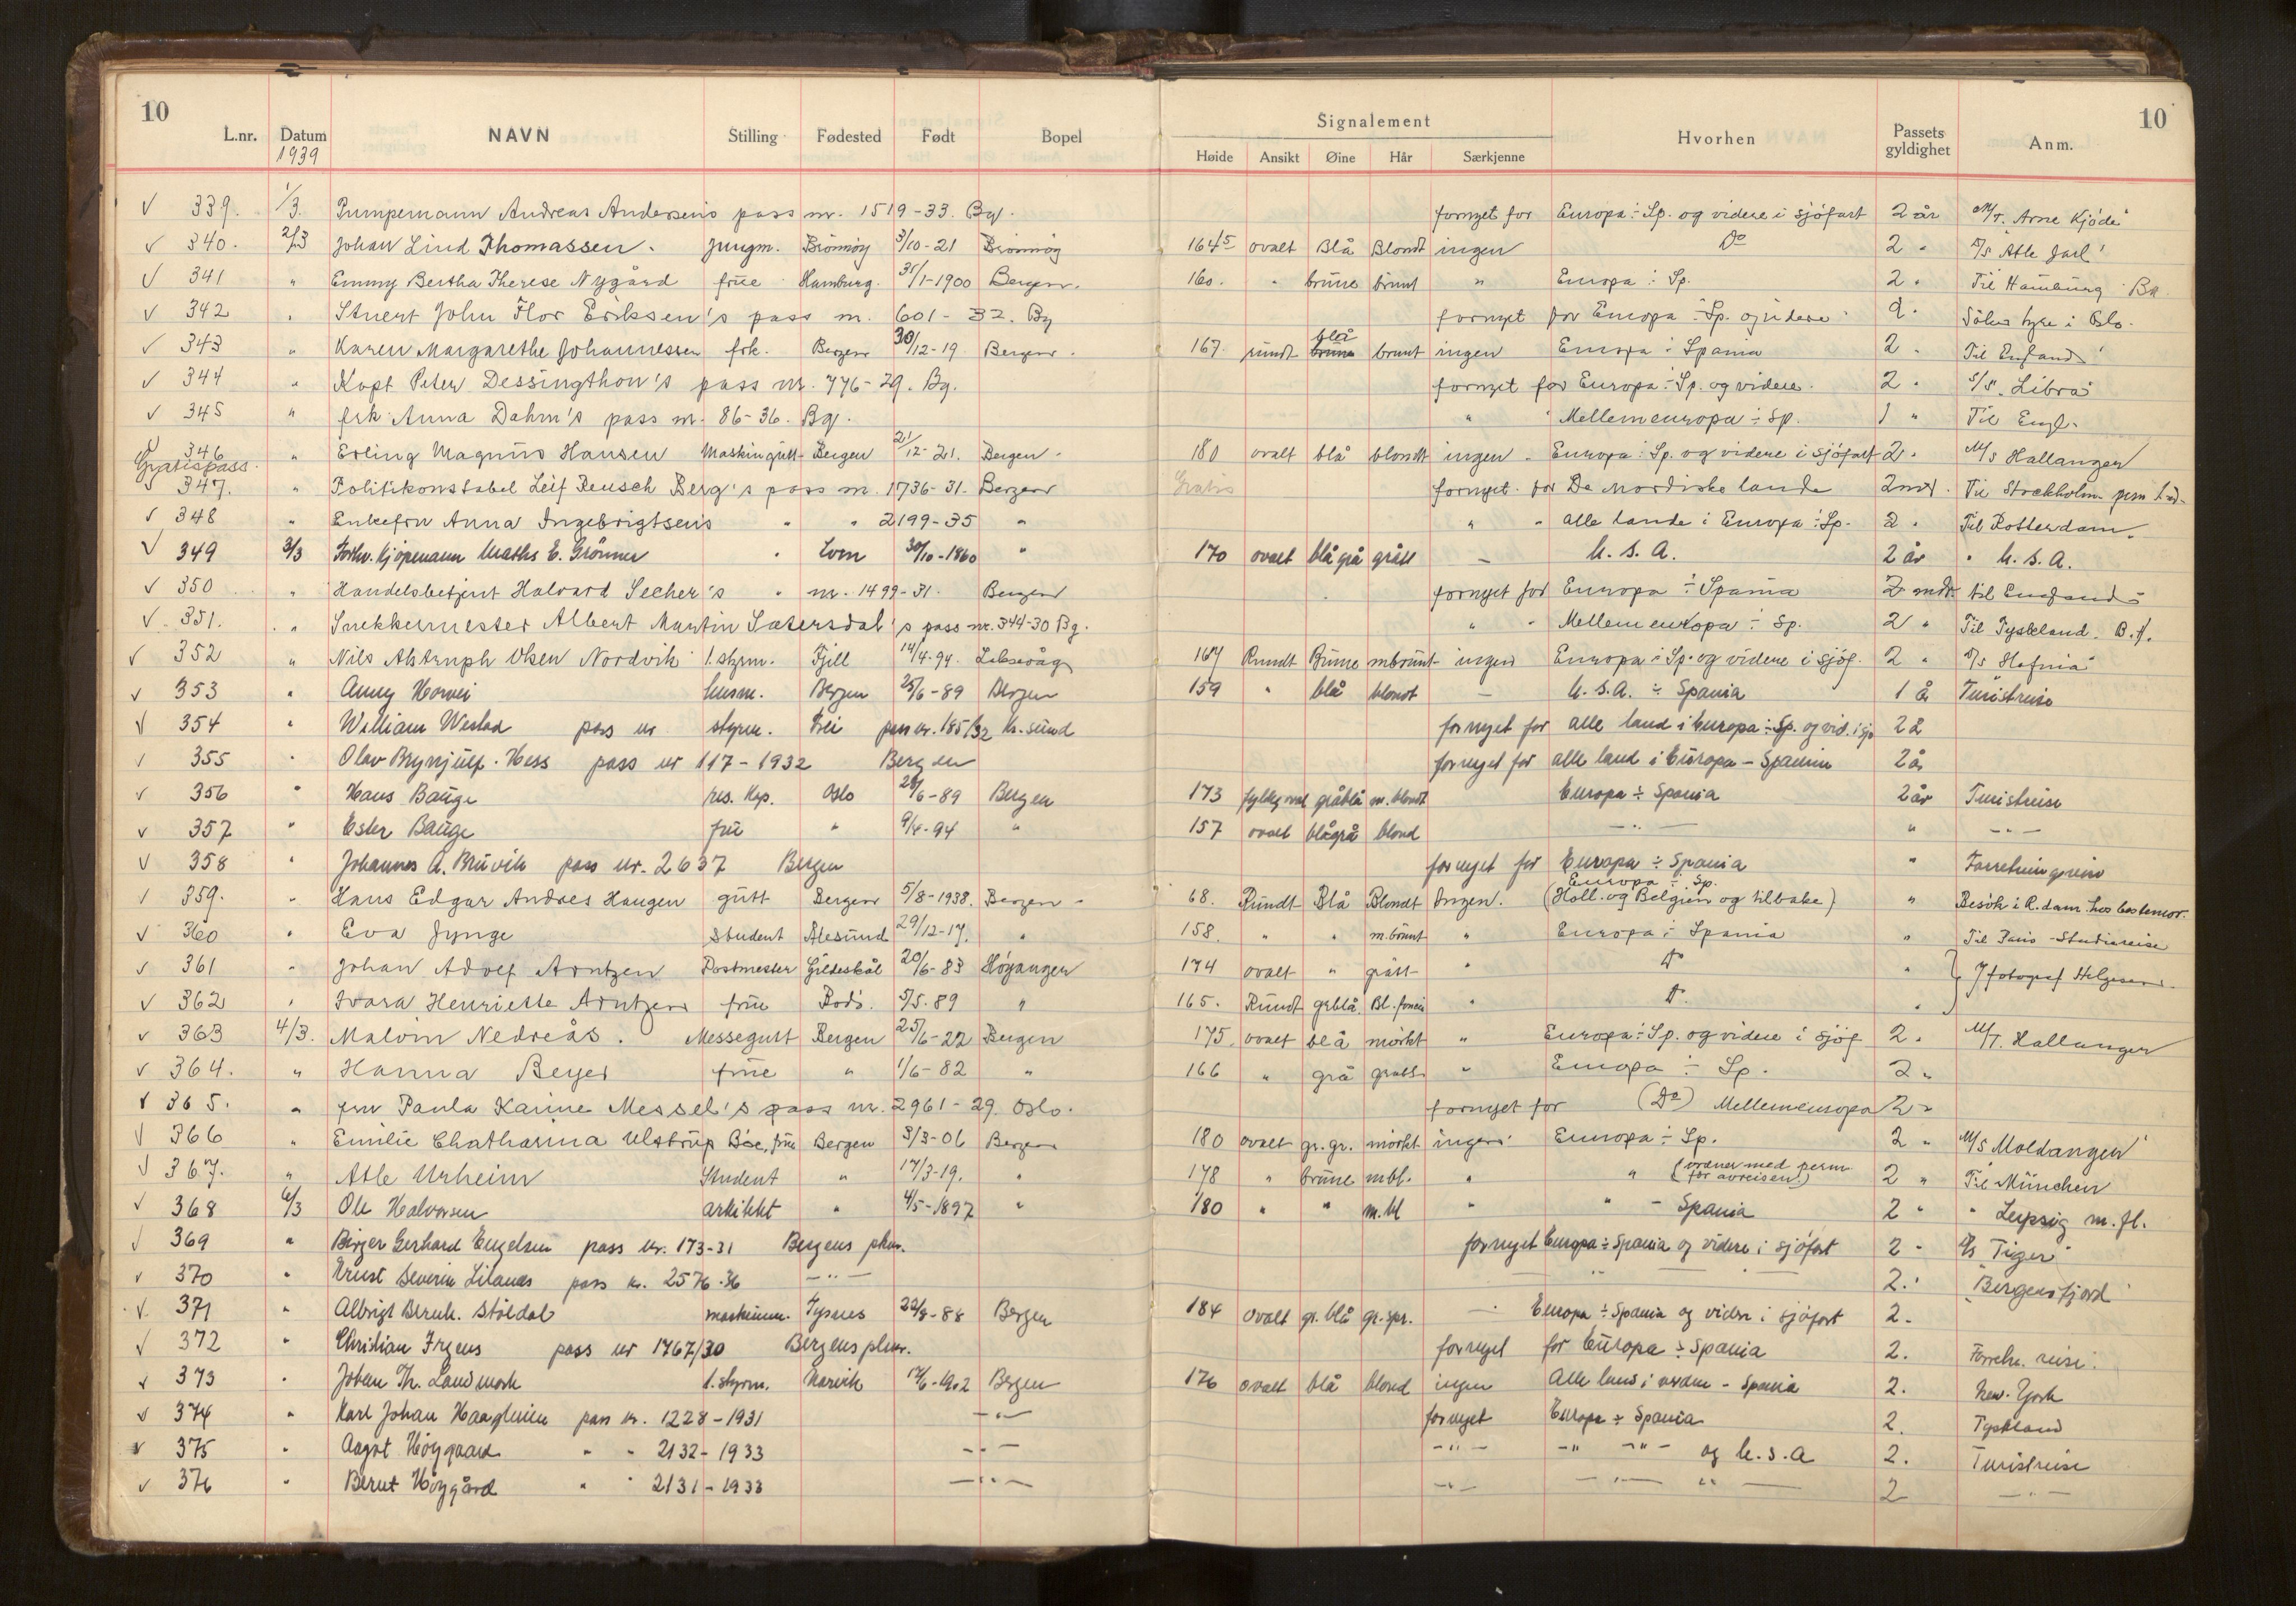 10
L.nr. Datum NAVN Stilling Fødested Født Bopel
1939
Signalement
Høide Ansikt Øine Hår Særkjenne Hvorhen Passets gyldighet Anm.
10
√ 339. 1/3. Pumpemann Andreas Andersens pass nr. 1519-33. Bg. fornyet for Europa ÷ Sp. og videre i sjöfart 2 år M/T. "Arne Kjöde"
√ 340. 2/3 Johan Lind Thomassen. jungm. Brönnöy 3/10-21 Brönnöy 164⁵ ovalt Blå Blondt ingen Do 2 " S/S "Atle Jarl"
√ 341 " Emmy Bertha Therese Nygård frue Hamburg. 31/1-1900 Bergen. 160. " brune brunt " Europa ÷ Sp. 2 " Til Hamburg
√ 342 " Stuert John Flor Eriksen's pass nr. 601-32. Bg fornyet for Europa ÷ Sp. og videre 2 " Söker hyre i Oslo.
√ 343 " Karen Margarethe Johannessen frk. Bergen 30/12-19 Bergen. 167. rundt blå brune brunt ingen Europa ÷ Spania 2 " Til England
√ 344 " Kapt Peter Dessingthon's pass nr. 776-29. Bg. fornyet for Europa ÷ Sp. og videre. 2 " S/S "Libra"
√ 345 " frk Anna Dahm's pass nr. 86-36. Bg. " " Mellemeuropa ÷ Sp. 1 " Til Engl.
√ 346 " Erling Magnus Hansen Maskingutt Bergen 21/12-21. Bergen. 180 ovalt blå blondt ingen. Europa ÷ Sp. og videre i sjöfart 2 " M/S Hallanger
Gratispass.
√ 347. " Politikonstabel Leif Reusch Berg's pass nr. 1736-31. Bergen Gratis fornyet for De Nordiske lande 2 mdr. Til Stockholm
√ 348 " Enkefru Anna Ingebrigtsens " " 2199-35 " " " alle lande i Europa ÷ Sp. 2 " Til Rotterdam.
√ 349 3/3 Forhv. kjöpmann Maths E. Grönner " Lom 30/10-1860 " 170 ovalt blågrå grått - U.S.A. 2 år " U.S.A.
√ 350 " Handelsbetjent Halvard Secher's " nr. 1499-31. Bergen fornyet for Europa ÷ Spania 2 mdr. til England
√ 351. " Snekkermester Albert Martin Sætersdal's pass nr. 344-30 Bg. " " Mellemeuropa ÷ Sp. 2 " Til Tyskland. B.f.
√ 352 " Nils Alstrup Olsen Nordvik 1. styrm. Fjell 14/4-94. Laksevåg 167 Rundt Brune mbrunt ingen Europa ÷ Sp. og videre i sjöf. 2 " S/S "Hafnia"
√ 353 " Anny Horvei husm. Bergen 25/6-89 Bergen 159 " blå blondt - U.S.A. ÷ Spania 1 å Turistreise
√ 354 " William Westad pass nr styrm. Frei pass nr. 185/32 Kr.sund fornyet for alle land i Europa ÷ Sp. og vid. i sjö 2 å
√ 355 " Olav Brynjulf Hess pass nr 117-1932 Bergen fornyet for alle land i Europa - Spania 2 år
√ 356 " Hans Bauge res. kap. Oslo 28/6-89 Bergen 173 fyldig oval gråblå m. blondt Europa ÷ Spania 2 år Turistreise
√ 357 " Ester Bauge fru " 9/4-94 " 157 ovalt blågrå blond - " - " - " -
√ 358 " Johannes A. Bruvik pass nr. 2637 Bergen fornyet for Europa ÷ Spania " Forretningsreise
√ 359. " Hans Edgar Andres Haugen gutt Bergen 5/8-1938. Bergen. 68. Rundt Blå Blondt Ingen. Europa ÷ Sp. (Holl. og Belgien og tilbake) " Besök i R.dam hos bestemor.
√ 360 " Eva Jynge Student Ålesund 29/12-17. " 158. " " m.brunt " Europa ÷ Spania " Til Paris - Studiereise
√ 361 " Johan Adolf Arntzen Postmester Gildeskål 20/6-83 Höyanger 174 ovalt " grått " Do " } J fotograf Helgesen
√ 362 " Ivara Henriette Arntzen frue Bodö. 5/5-89 " 165. Rundt grblå Bl. " Do. "
√ 363 4/3. Malvin Nedreås. Messegutt Bergen 25/6-22 Bergen 175. ovalt blå mörkt " Europa ÷ Sp. og videre i sjöf. 2. M/T. Hallanger
√ 364. " Hanna Beyer frue " 1/6-82 " 166 " grå grått " Europa ÷ Sp. 2 "
√ 365. " fru Paula Karine Messel's pass nr. 2961-29. Oslo. fornyet for (Do) Mellemeuropa 2 "
√ 366 " Emilie Chatharina Ulstrup Böe, frue Bergen 3/3-06 Bergen 180 ovalt gr.gr. mörkt ingen Europa ÷ Sp. 2 " M/S "Moldanger"
√ 367. " Atle Urheim Student " 17/3-19. " 178 " brune mbl. " " (ordner med perm. för avreisen!) 2 " Til München
√ 368 6/3 Ole Halvorsen arkitekt " 4/5-1897 " 180 " " m.bl " " - Spania 2 " " Leipzig m.fl.
√ 369 " Birger Gerhard Engelsen pass nr. 173-31 Bergens pkm. fornyet Europa ÷ Spania og videre i sjöfart 2 " S/S "Tiger"
√ 370 " Ernst Severin Lilaas pass nr. 2576-36 - " - " 2. "Bergensfjord"
√ 371 " Albrigt Bernh. Stöldal maskinm. Tysnes 22/8-88 Bergen 184 ovalt gr.blå gr.spr. - Europa ÷ Spania og videre i sjöfart 2.
√ 372 " Christian Irgens pass nr 1767/30 Bergens pkm. fornyet for Europa ÷ Spania 2. Forretn. reise.
√ 373 " Johan Th. Landmark 1. styrm. Narvik 14/6-1902 Bergen 176 ovalt blå blond ingen Alle land i verden - Spania 2. New-York
√ 374 " Karl Johan Haaglmien pass nr. 1228-1931 - " - fornyet Europa ÷ Spania 2. Tyskland
√ 375 " Aagot Höygaard " " 2132-1933 - " - - " - - " - " - og U.S.A 2. Turistreise
√ 376 " Bernt Höygård " " 2131-1933 - " - - " - - " - " - 2 - " -